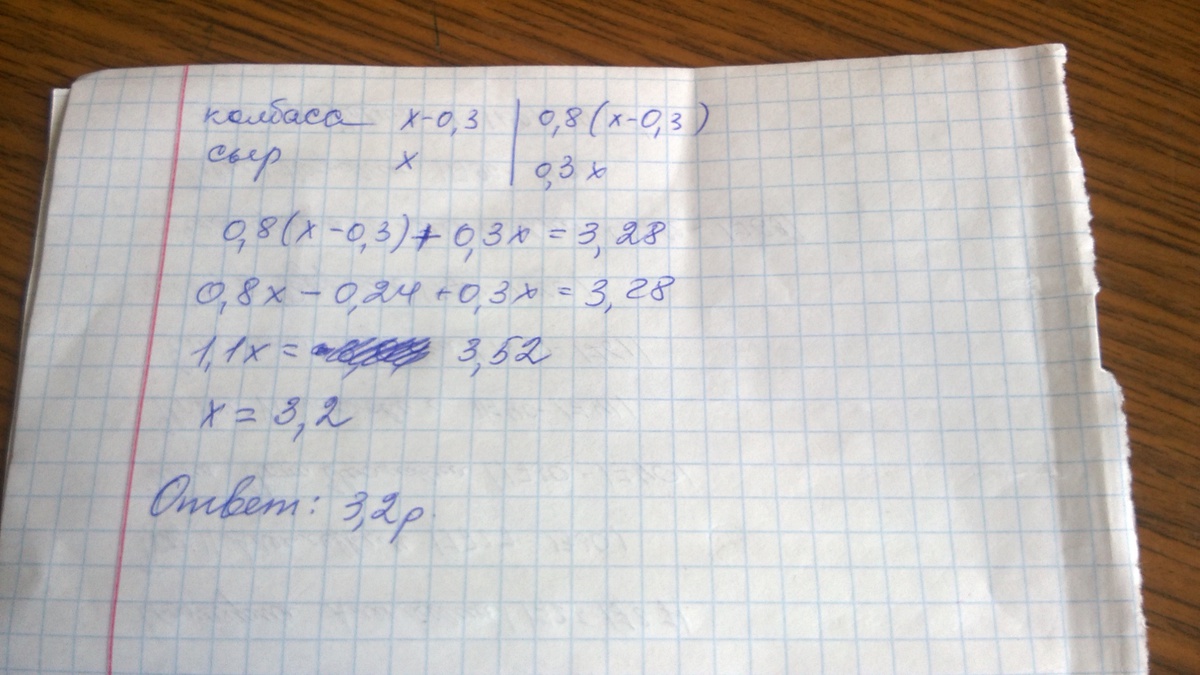 колбаса х-0,3 | 0,8(х-0,3)
сыр х | 0,3х
0,8(х-0,3)+0,3х=3,28
0,8х-0,24+0,3х=3,28
1,1х= 3,52
х=3,2
Ответ: 3,2р.